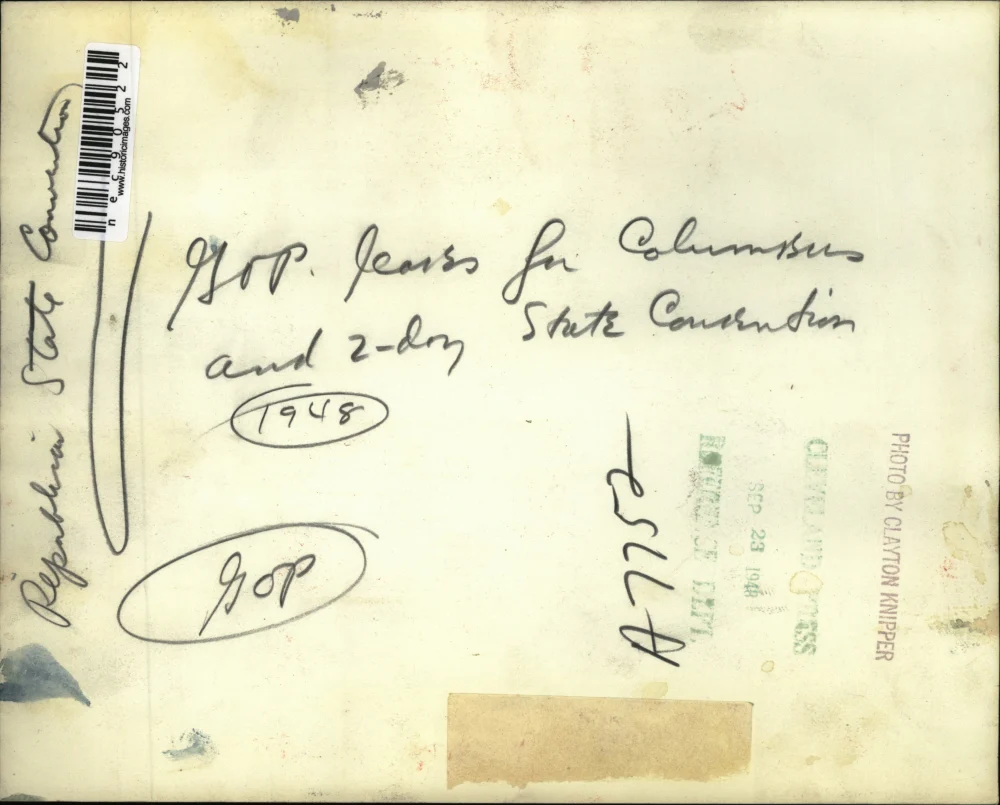 Republican State Convention
nec90522
www.historicimages.com
GOP. leaves for Columbus
and 2-day State Convention
1948
GOP
A-7752
REFERENCE DEPT.
SEP 23 1948
CLEVELAND PRESS
PHOTO BY CLAYTON KNIPPER